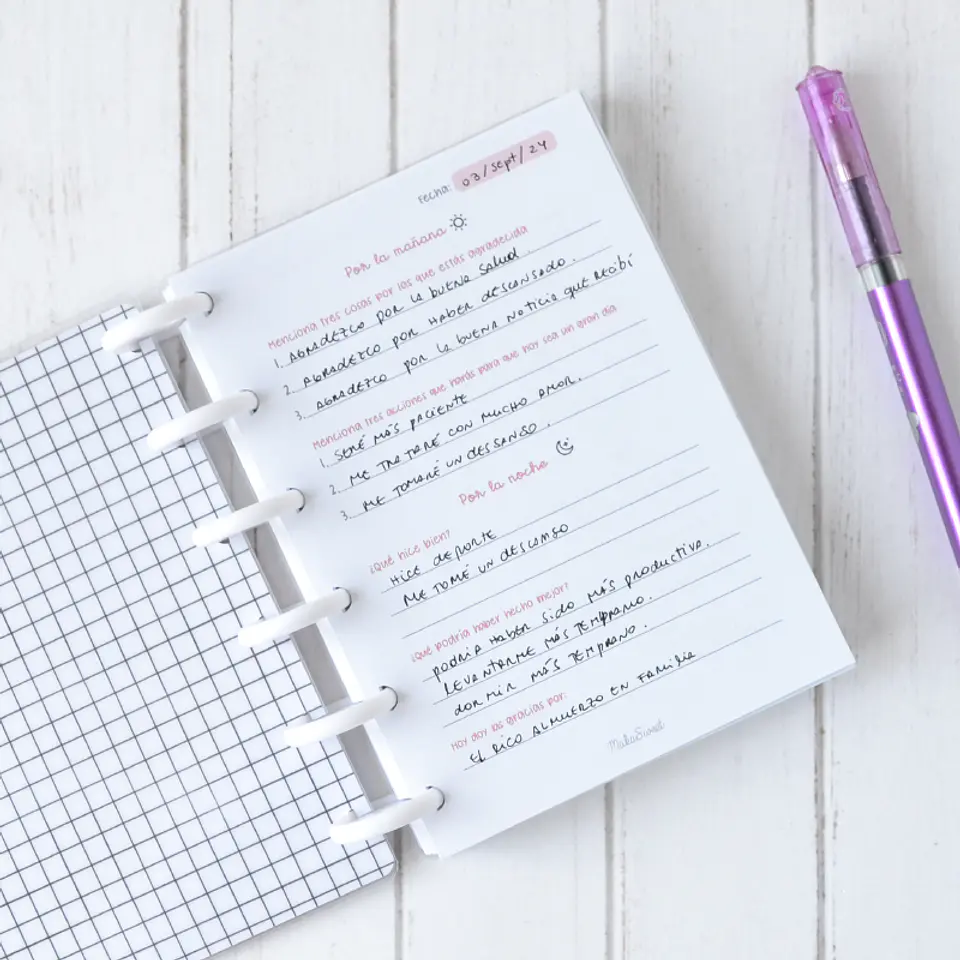 Fecha: 03/sept/24
Por la mañana
Menciona tres cosas por las que estás agradecida
1. AGRADEZCO POR LA BUENA SALUD.
2. AGRADEZCO POR HABER DESCANSADO.
3. AGRADEZCO POR LA BUENA NOTICIA QUE RECIBÍ
Menciona tres acciones que harás para que hoy sea un gran día
1. SERÉ MÁS PACIENTE
2. ME TRATARÉ CON MUCHO AMOR.
3. ME TOMARÉ UN DESSANSO.
Por la noche
¿Qué hice bien?
HICE DEPORTE
ME TOMÉ UN DESCANSO
¿Qué podría haber hecho mejor?
PODRÍA HABER SIDO MÁS PRODUCTIVA.
LEVANTARME MÁS TEMPRANO.
DORMIR MÁS TEMPRANO.
Hoy doy las gracias por:
EL RICO ALMUERZO EN FAMILIA